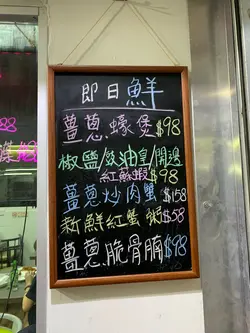 即日鮮
薑蔥蠔煲$98
椒鹽/豉油皇/開邊
紅蘇蝦$98
薑蔥炒肉蟹$158
新鮮紅蟹粥$58
薑蔥脆骨腩$98